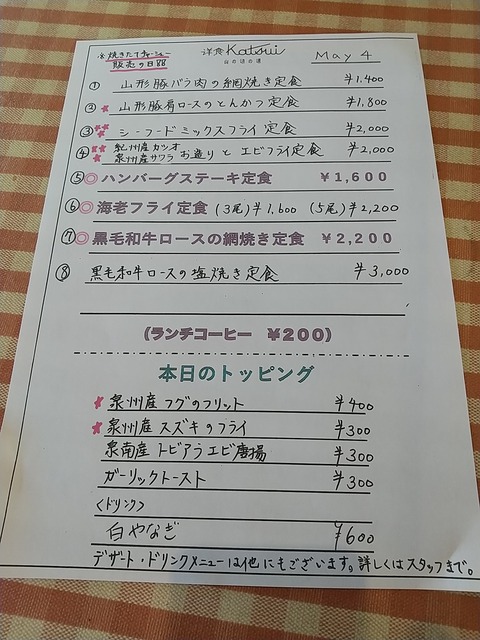 ※焼きたてチャーシュー
販売の日
洋食 Katsui
山の辺の道
May 4
① 山形豚バラ肉の網焼き定食 ¥1,400
② ★ 山形豚肩ロースのとんかつ定食 ¥1,800
③ ★★★ シーフードミックスフライ定食 ¥2,000
④ ★★ 紀州産カツオ 泉州産サワラ お造りとエビフライ定食 ¥2,000
⑤ ◎ ハンバーグステーキ定食 ¥1,600
⑥ ◎ 海老フライ定食 (3尾)¥1,600 (5尾)¥2,200
⑦ ◎ 黒毛和牛ロースの網焼き定食 ¥2,200
⑧ 黒毛和牛ロースの塩焼き定食 ¥3,000
(ランチコーヒー ¥200)
本日のトッピング
★ 泉州産フグのフリット ¥400
★ 泉州産スズキのフライ ¥300
泉南産トビアラエビ唐揚 ¥300
ガーリックトースト ¥300
<ドリンク>
白やなぎ ¥600
デザート・ドリンクメニューは他にもございます。詳しくはスタッフまで。